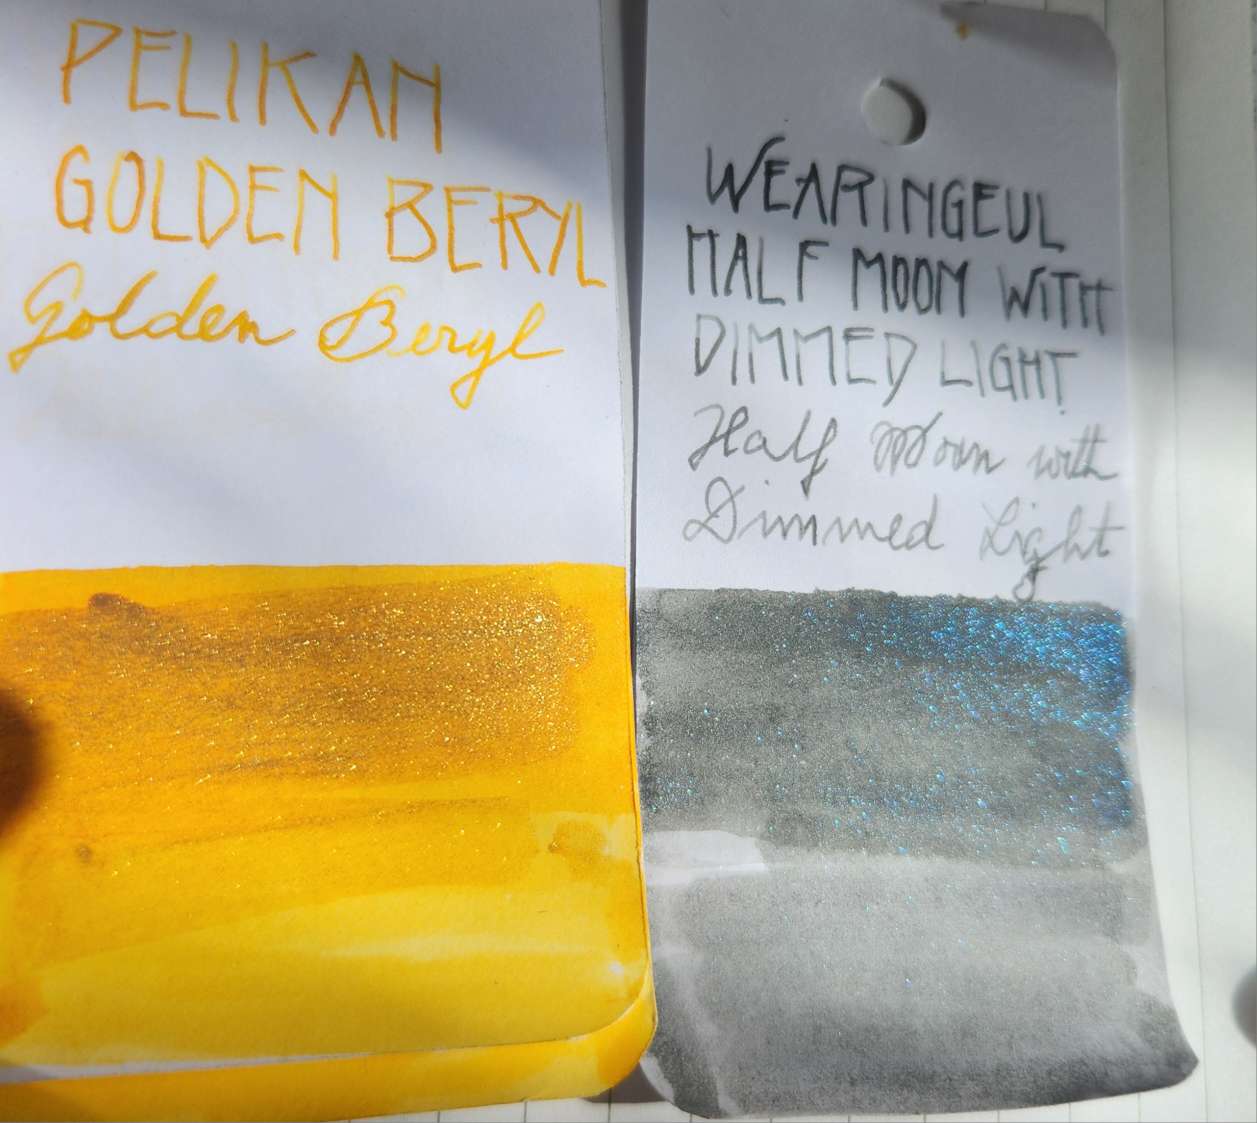 PELIKAN
GOLDEN BERYL
Golden Beryl
WEARINGEUL
HALF MOON WITH
DIMMED LIGHT
Half Moon with
Dimmed Light